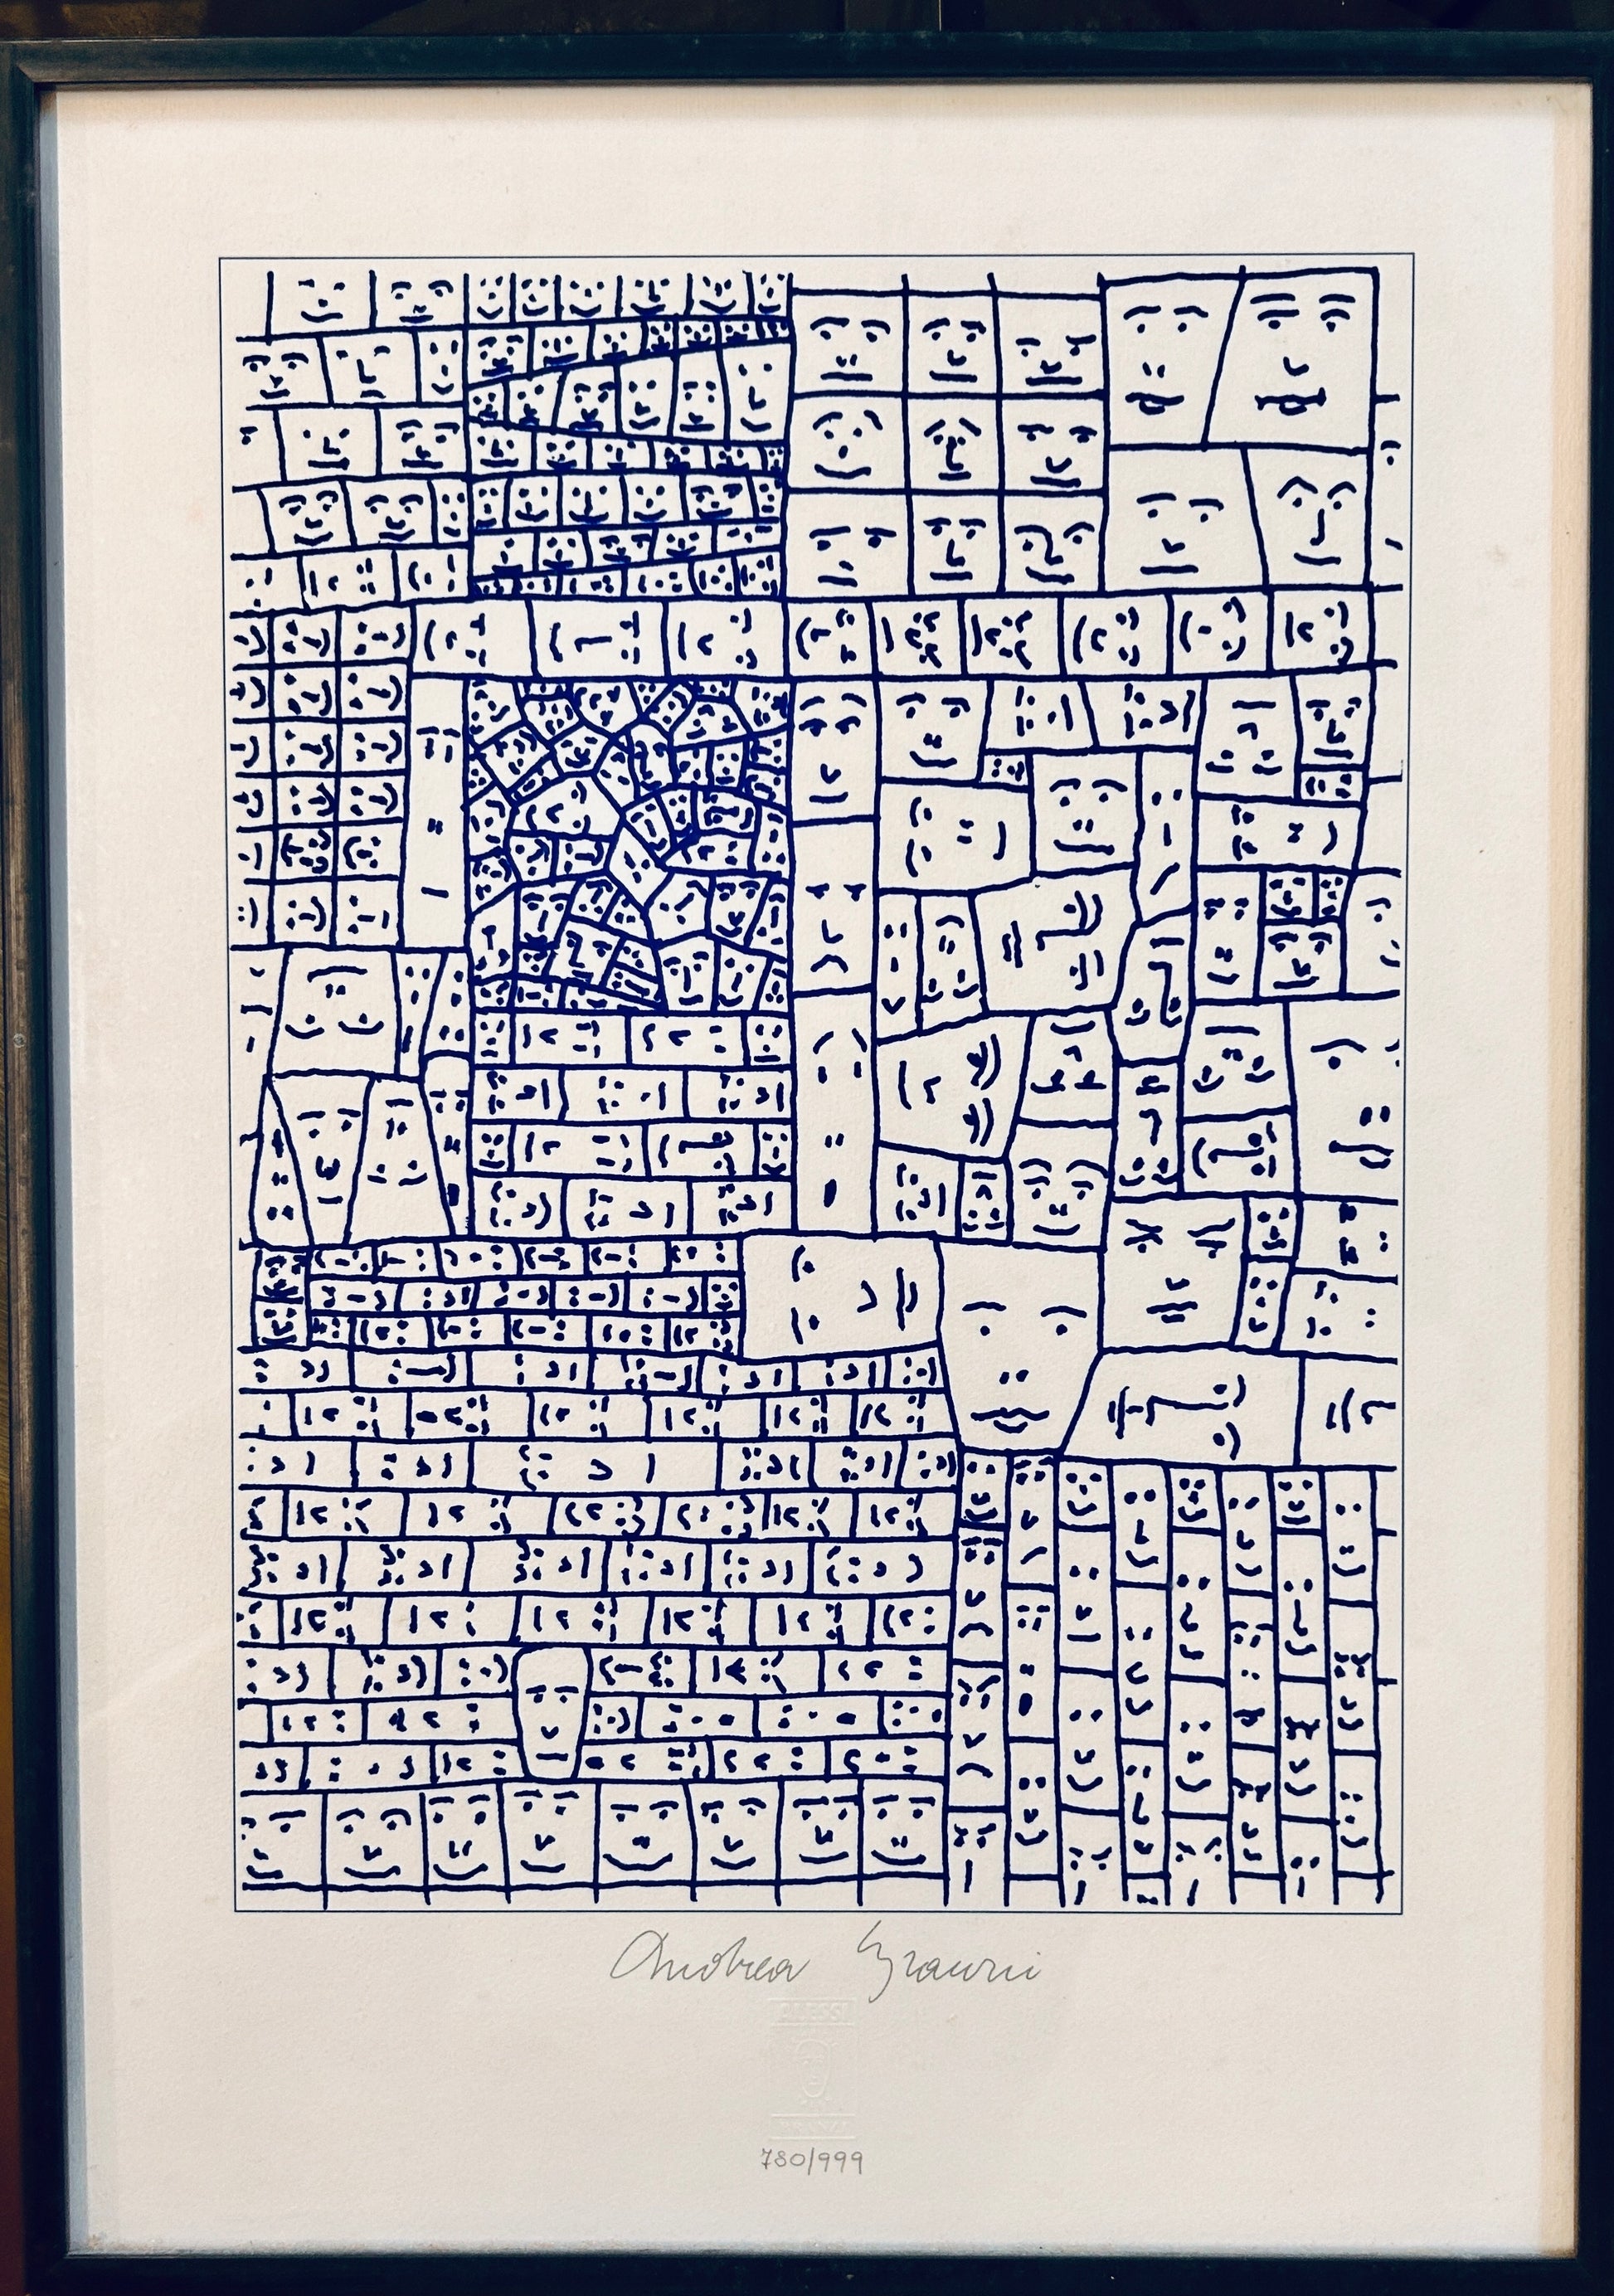 Andrea Branzi
ALESSI
780/999